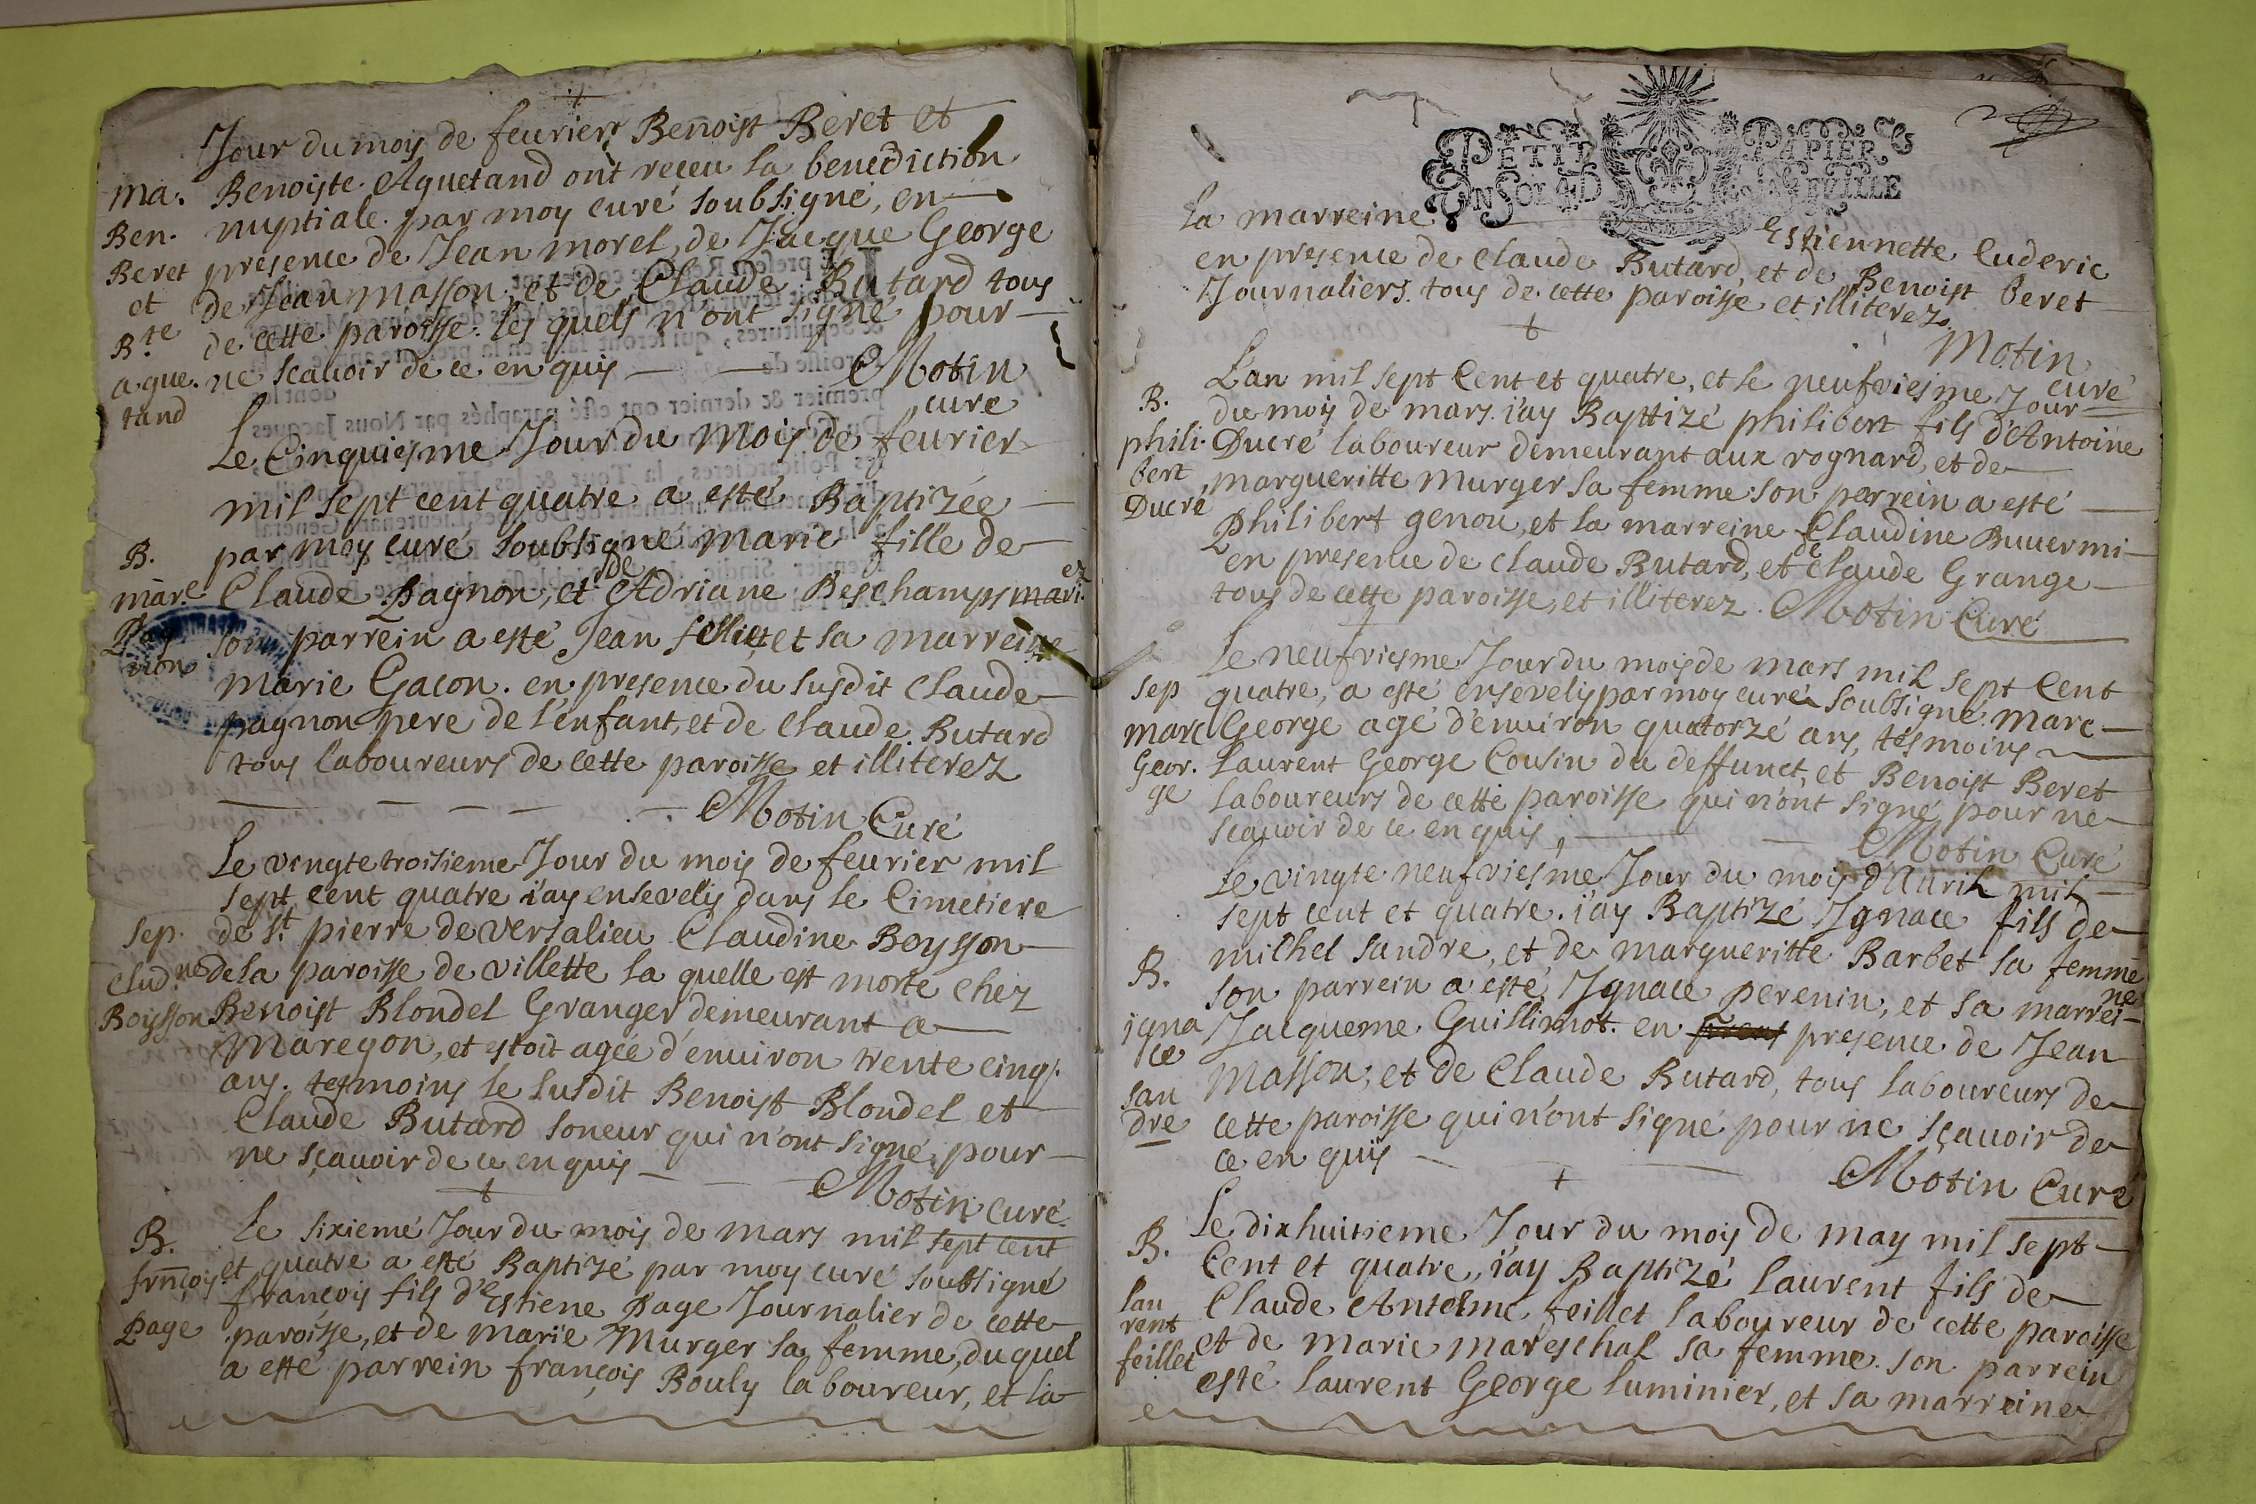 Jour du mois de feurier Benoist Beret et
ma. Benoiste Aguetand ont receu la benediction
Ben. nuptiale par moy curé soubsigné, en
Beret presence de Jean morel, de Jacque George
et de Jean masson, et de Claude Butard tous
B.te de cette paroisse les quels n'ont signé pour
ague. ne scauoir de ce enquis Motin
tand curé
Le Cinquiesme Jour du mois de feurier
mil sept cent quatre a esté Baptizée
B. par moy curé soubsigné marie fille de
de
mar.e Claude Pagnon, et Adriane Deschamps mari. ez
Pag son parrein a esté Jean felliet et sa marreine
non marie Gacon. en presence du susdit Claude
pagnon pere de l'enfant, et de Claude Butard
tous laboureurs de cette paroisse et illiterez
Motin Curé
Le vingte troisieme Jour du mois de feurier mil
sept cent quatre i'ay ensevelis dans le Cimetiere
sep. de s.t pierre de versalieu Claudine Boysson
Clud.ne de la paroisse de villette la quelle est morte chez
Boysson Benoist Blondel Granger demeurant a
Maregon, et estoit agée d'environ trente cinq
ans. tesmoins le susdit Benoist Blondel et
Claude Butard soneur qui n'ont signé pour
ne sçauoir de ce enquis
Motin curé
B. Le sixieme Jour du mois de mars mil sept cent
frnçois et quatre a esté Baptizé par moy curé soubsigné
françois fils d'Estiene Page Journalier de cette
Page paroisse, et de marie Murger sa femme, duquel
a esté parrein françois Bouly laboureur, et la
PETIT PAPIER
UN SOL 4 D LA FEUILLE
la marreine Estiennette Cuderic
en presence de Claude Butard, et de Benoist Beret
Journaliers tous de cette paroisse et illiterez
Motin
curé
L'an mil sept Cent et quatre, et le neufviesme Jour
B. du mois de mars i'ay Baptizé philibert fils d'Antoine
phili. Ducré laboureur demeurant aux rognard, et de
bert margueritte Murger sa femme son parrein a esté
Ducré Philibert genou, et la marreine Claudine Buuermi
de
en presence de Claude Butard, et Claude Grange
tous de cette paroisse, et illiterez. Motin Curé
Le neufviesme Jour du mois de mars mil sept Cent
sep quatre, a esté ensevelis par moy curé soubsigné marc
marc George agé d'environ quatorzé ans, tesmoins
Geor. Laurent George Cousin du deffunct, et Benoist Beret
ge laboureurs de cette paroisse qui n'ont signé pour ne
scauoir de ce enquis,
Motin Curé
Le vingte neufviesme Jour du mois d'Auril mil
sept cent et quatre. i'ay Baptizé Jgnace fils de
B. milhel sandre, et de margueritte Barbet sa femme
son parrein a esté Jgnace perenin, et sa marrei-
ne
igna Jacqueme Guillimot. en presence de Jean
ce Masson, et de Claude Butard, tous laboureurs de
san
dre cette paroisse qui n'ont signé pour ne sçauoir de
ce enquis
Motin Curé
B. Le dixhuitieme Jour du mois de may mil sept
Cent et quatre, i'ay Baptizé laurent fils de
lau
rent Claude Antelme feillet laboureur de cette paroisse
feillet et de marie mareschal sa femme. son parrein
esté laurent George luminier, et sa marreine